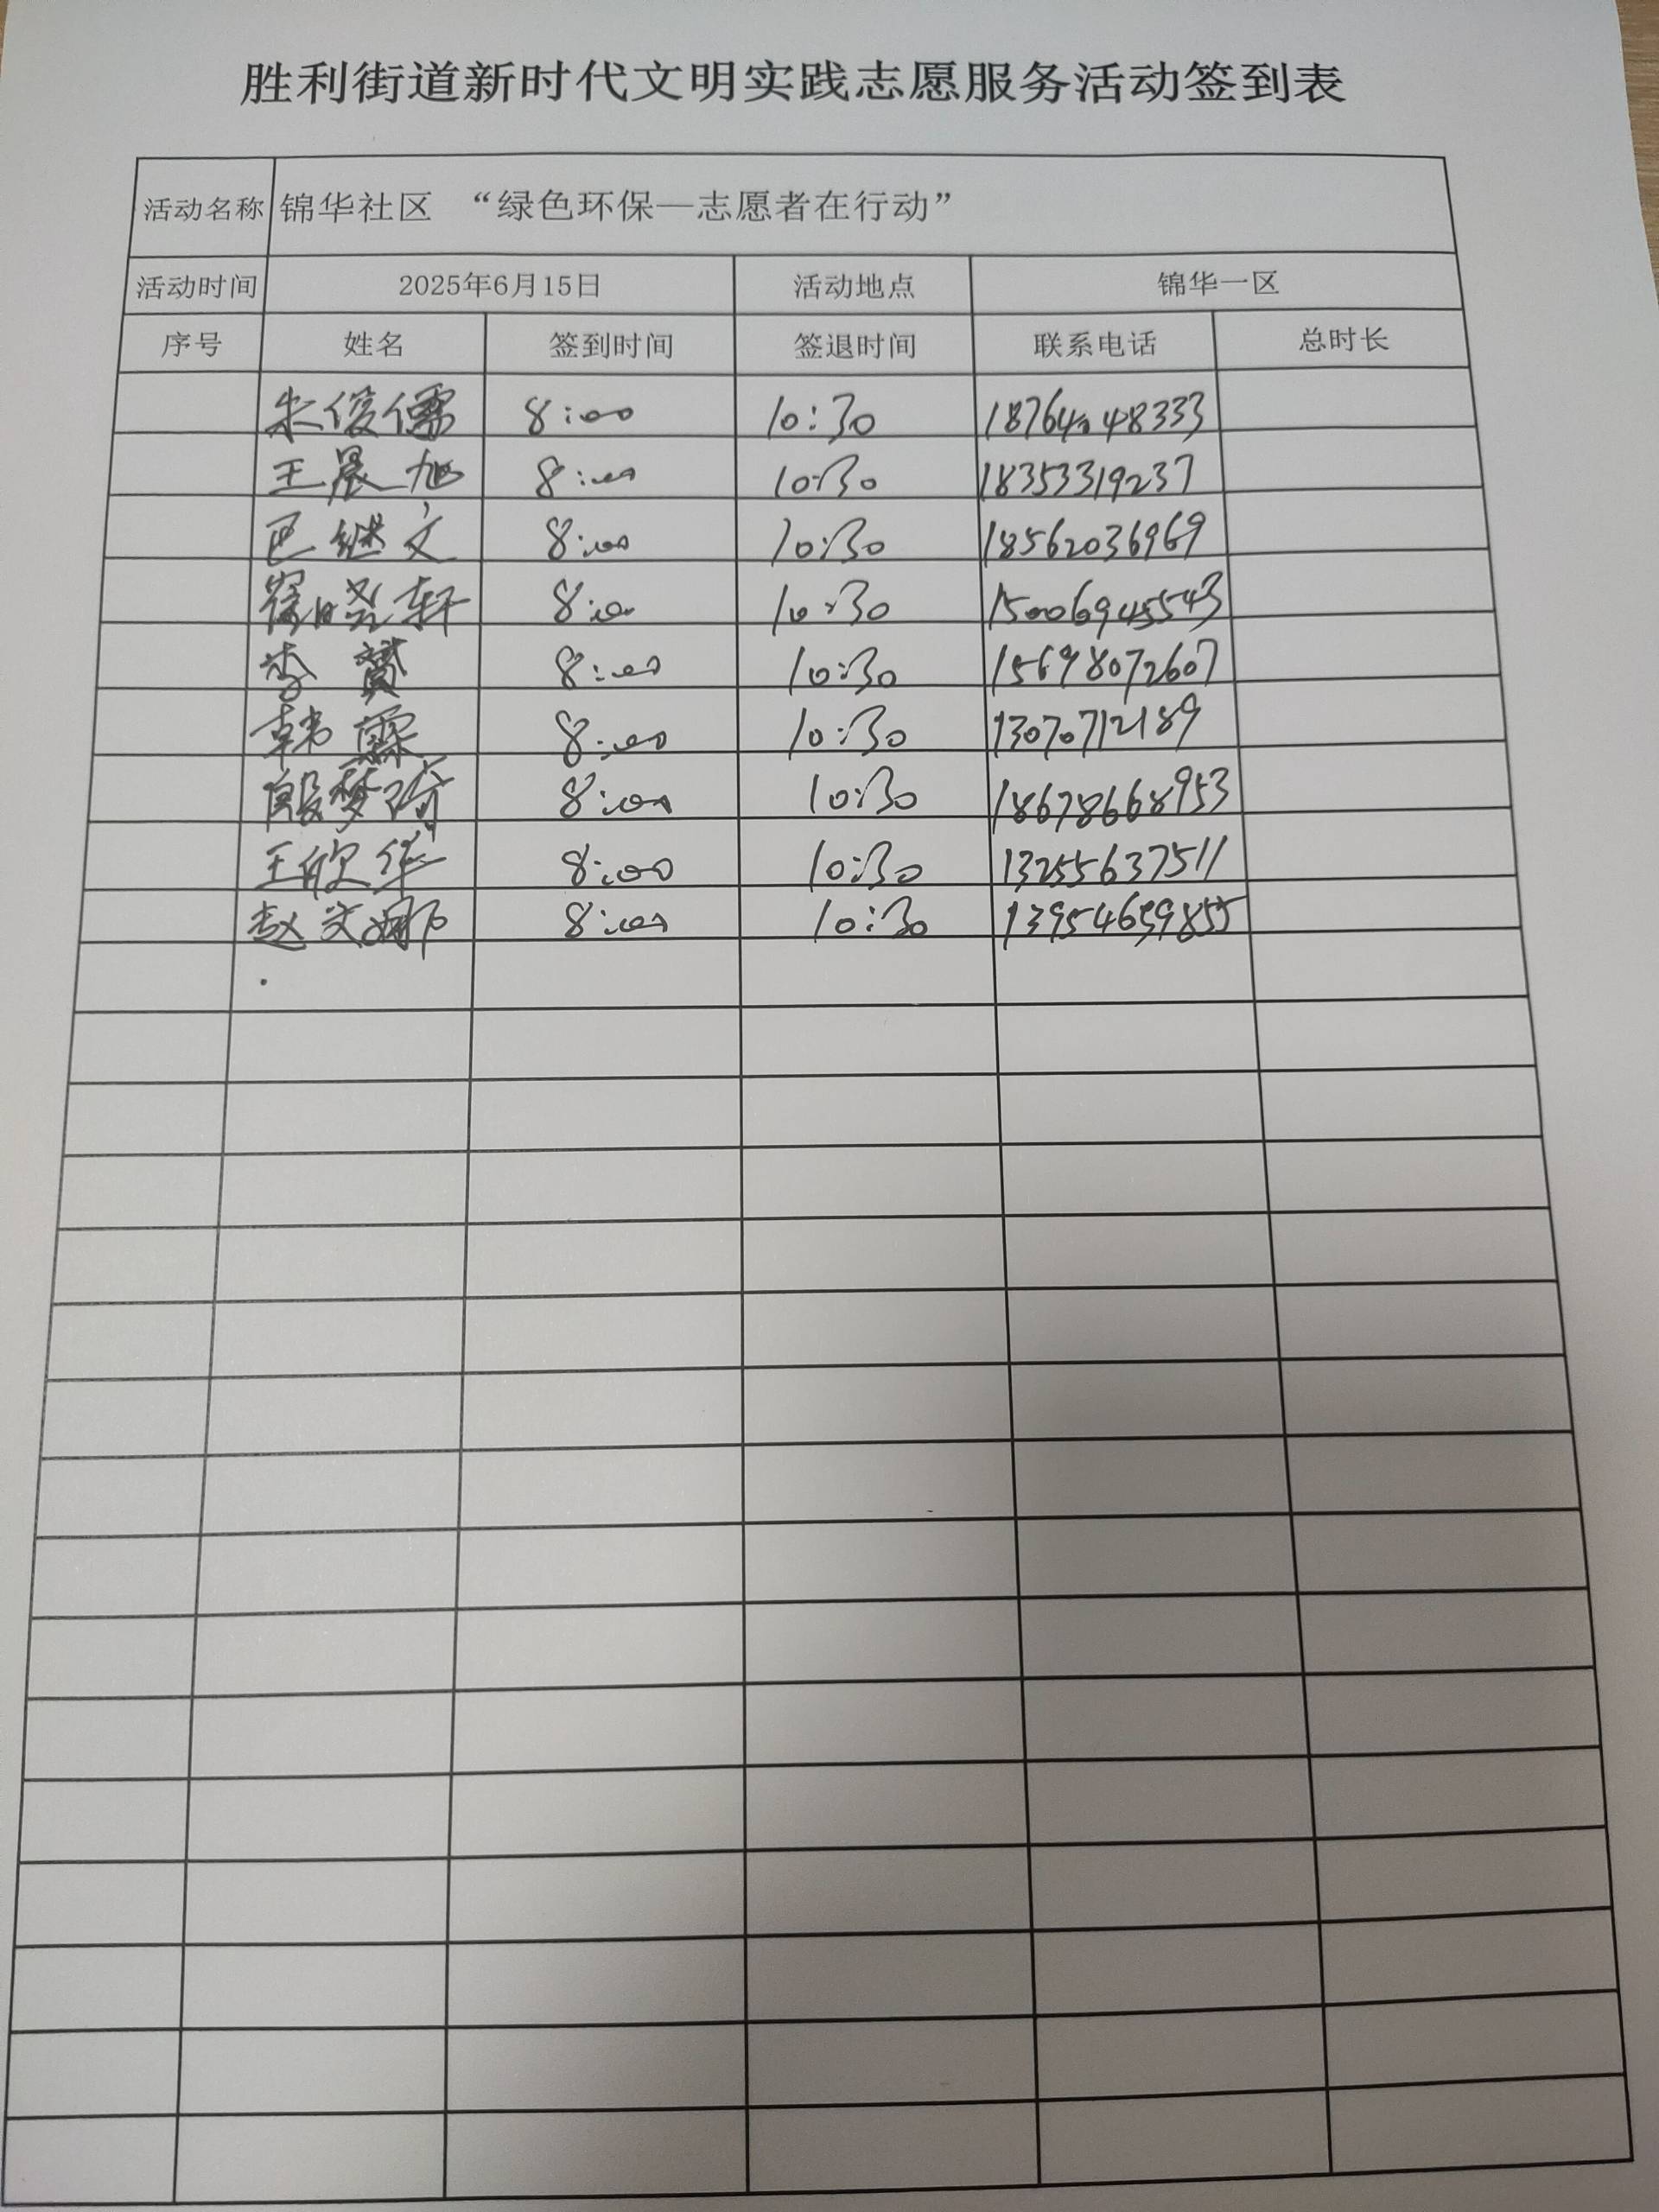 胜利街道新时代文明实践志愿服务活动签到表
活动名称 锦华社区 “绿色环保—志愿者在行动”
活动时间 2025年6月15日 活动地点 锦华一区
序号 姓名 签到时间 签退时间 联系电话 总时长
朱俊儒 8:00 10:30
王晨旭 8:00 10:30 18353319237
巴继文 8:00 10:30 18562036969
崔晓轩 8:00 10:30 15006945543
李赟 8:00 10:30 15698072607
韩霖 8:00 10:30 13070712189
殷梦琦 8:00 10:30 18678668953
王欣华 8:00 10:30 13255637511
赵文娜 8:00 10:30